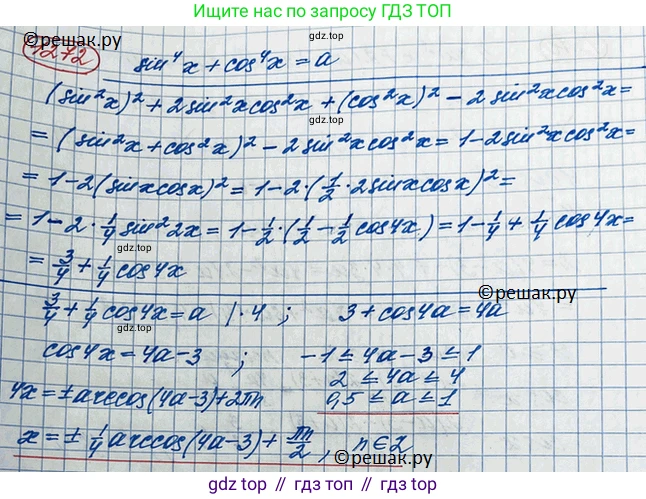 Ищите нас по запросу ГДЗ ТОП
©решак.ру
1272
sin⁴x + cos⁴x = a
gdz.top
(sin²x)² + 2sin²xcos²x + (cos²x)² - 2sin²xcos²x =
= (sin²x + cos²x)² - 2sin²xcos²x = 1 - 2sin²xcos²x =
gdz.top
= 1 - 2(sinxcosx)² = 1 - 2·(1/2·2sinxcosx)² =
= 1 - 2·1/4 sin²2x = 1 - 1/2·(1/2 - 1/2 cos4x) = 1 - 1/4 + 1/4 cos4x =
gdz.top
= 3/4 + 1/4 cos4x
©решак.ру
3/4 + 1/4 cos4x = a |·4 ; 3 + cos4a = 4a
gdz.top
cos4x = 4a - 3 ; -1 ≤ 4a - 3 ≤ 1
2 ≤ 4a ≤ 4
4x = ± arccos(4a-3) + 2πn
0,5 ≤ a ≤ 1
gdz.top
x = ± 1/4 arccos(4a-3) + πn/2, n∈Z
©решак.ру
gdz top // gdz top // gdz.top